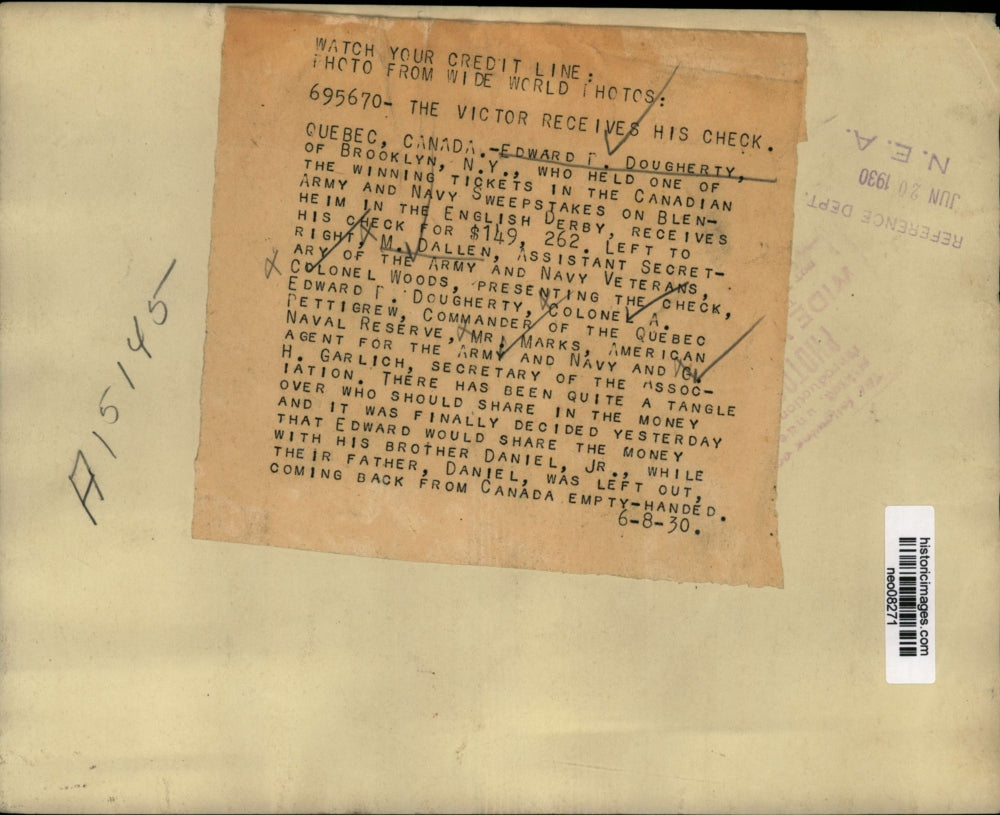 WATCH YOUR CREDIT LINE;
PHOTO FROM WIDE WORLD PHOTOS:
695670- THE VICTOR RECEIVES HIS CHECK.
QUEBEC, CANADA.-EDWARD P. DOUGHERTY,
OF BROOKLYN, N.Y., WHO HELD ONE OF
THE WINNING TICKETS IN THE CANADIAN
ARMY AND NAVY SWEEPSTAKES ON BLEN-
HEIM IN THE ENGLISH DERBY, RECEIVES
HIS CHECK FOR $149, 262. LEFT TO
RIGHT, M. DALLEN, ASSISTANT SECRET-
ARY OF THE ARMY AND NAVY VETERANS,
COLONEL WOODS, PRESENTING THE CHECK,
EDWARD P. DOUGHERTY, COLONEL A.
PETTIGREW, COMMANDER OF THE QUEBEC
NAVAL RESERVE, MR. MARKS, AMERICAN
AGENT FOR THE ARMY AND NAVY AND
H. GARLICH, SECRETARY OF THE ASSOC-
IATION. THERE HAS BEEN QUITE A TANGLE
OVER WHO SHOULD SHARE IN THE MONEY
AND IT WAS FINALLY DECIDED YESTERDAY
THAT EDWARD WOULD SHARE THE MONEY
WITH HIS BROTHER DANIEL, JR., WHILE
THEIR FATHER, DANIEL, WAS LEFT OUT,
COMING BACK FROM CANADA EMPTY-HANDED.
6-8-30.
A 15145
N. E. A.
JUN 20 1930
REFERENCE DEPT.
historicimages.com
neo08271